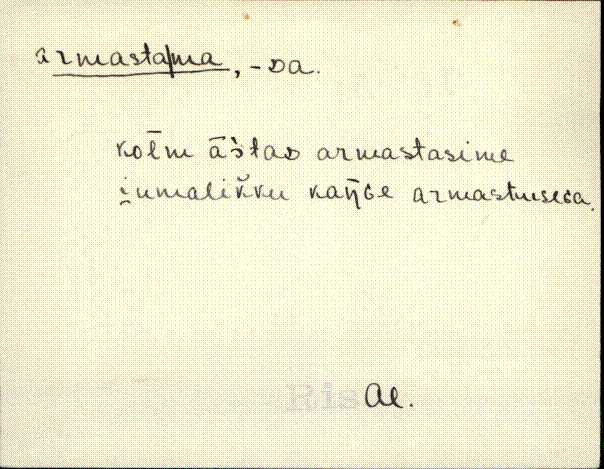 armasta|ma, -da.
kolm āstad armastasime
i̯umalikku kaŋge armastusega.
Ris Al.